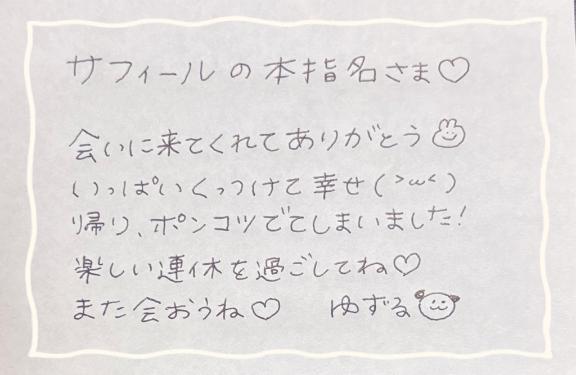 サフィールの本指名さま♡
会いに来てくれてありがとう
いっぱいくっつけて幸せ(>ω<)
帰り、ポンコツでてしまいました!
楽しい連休を過ごしてね♡
また会おうね♡ ゆずる